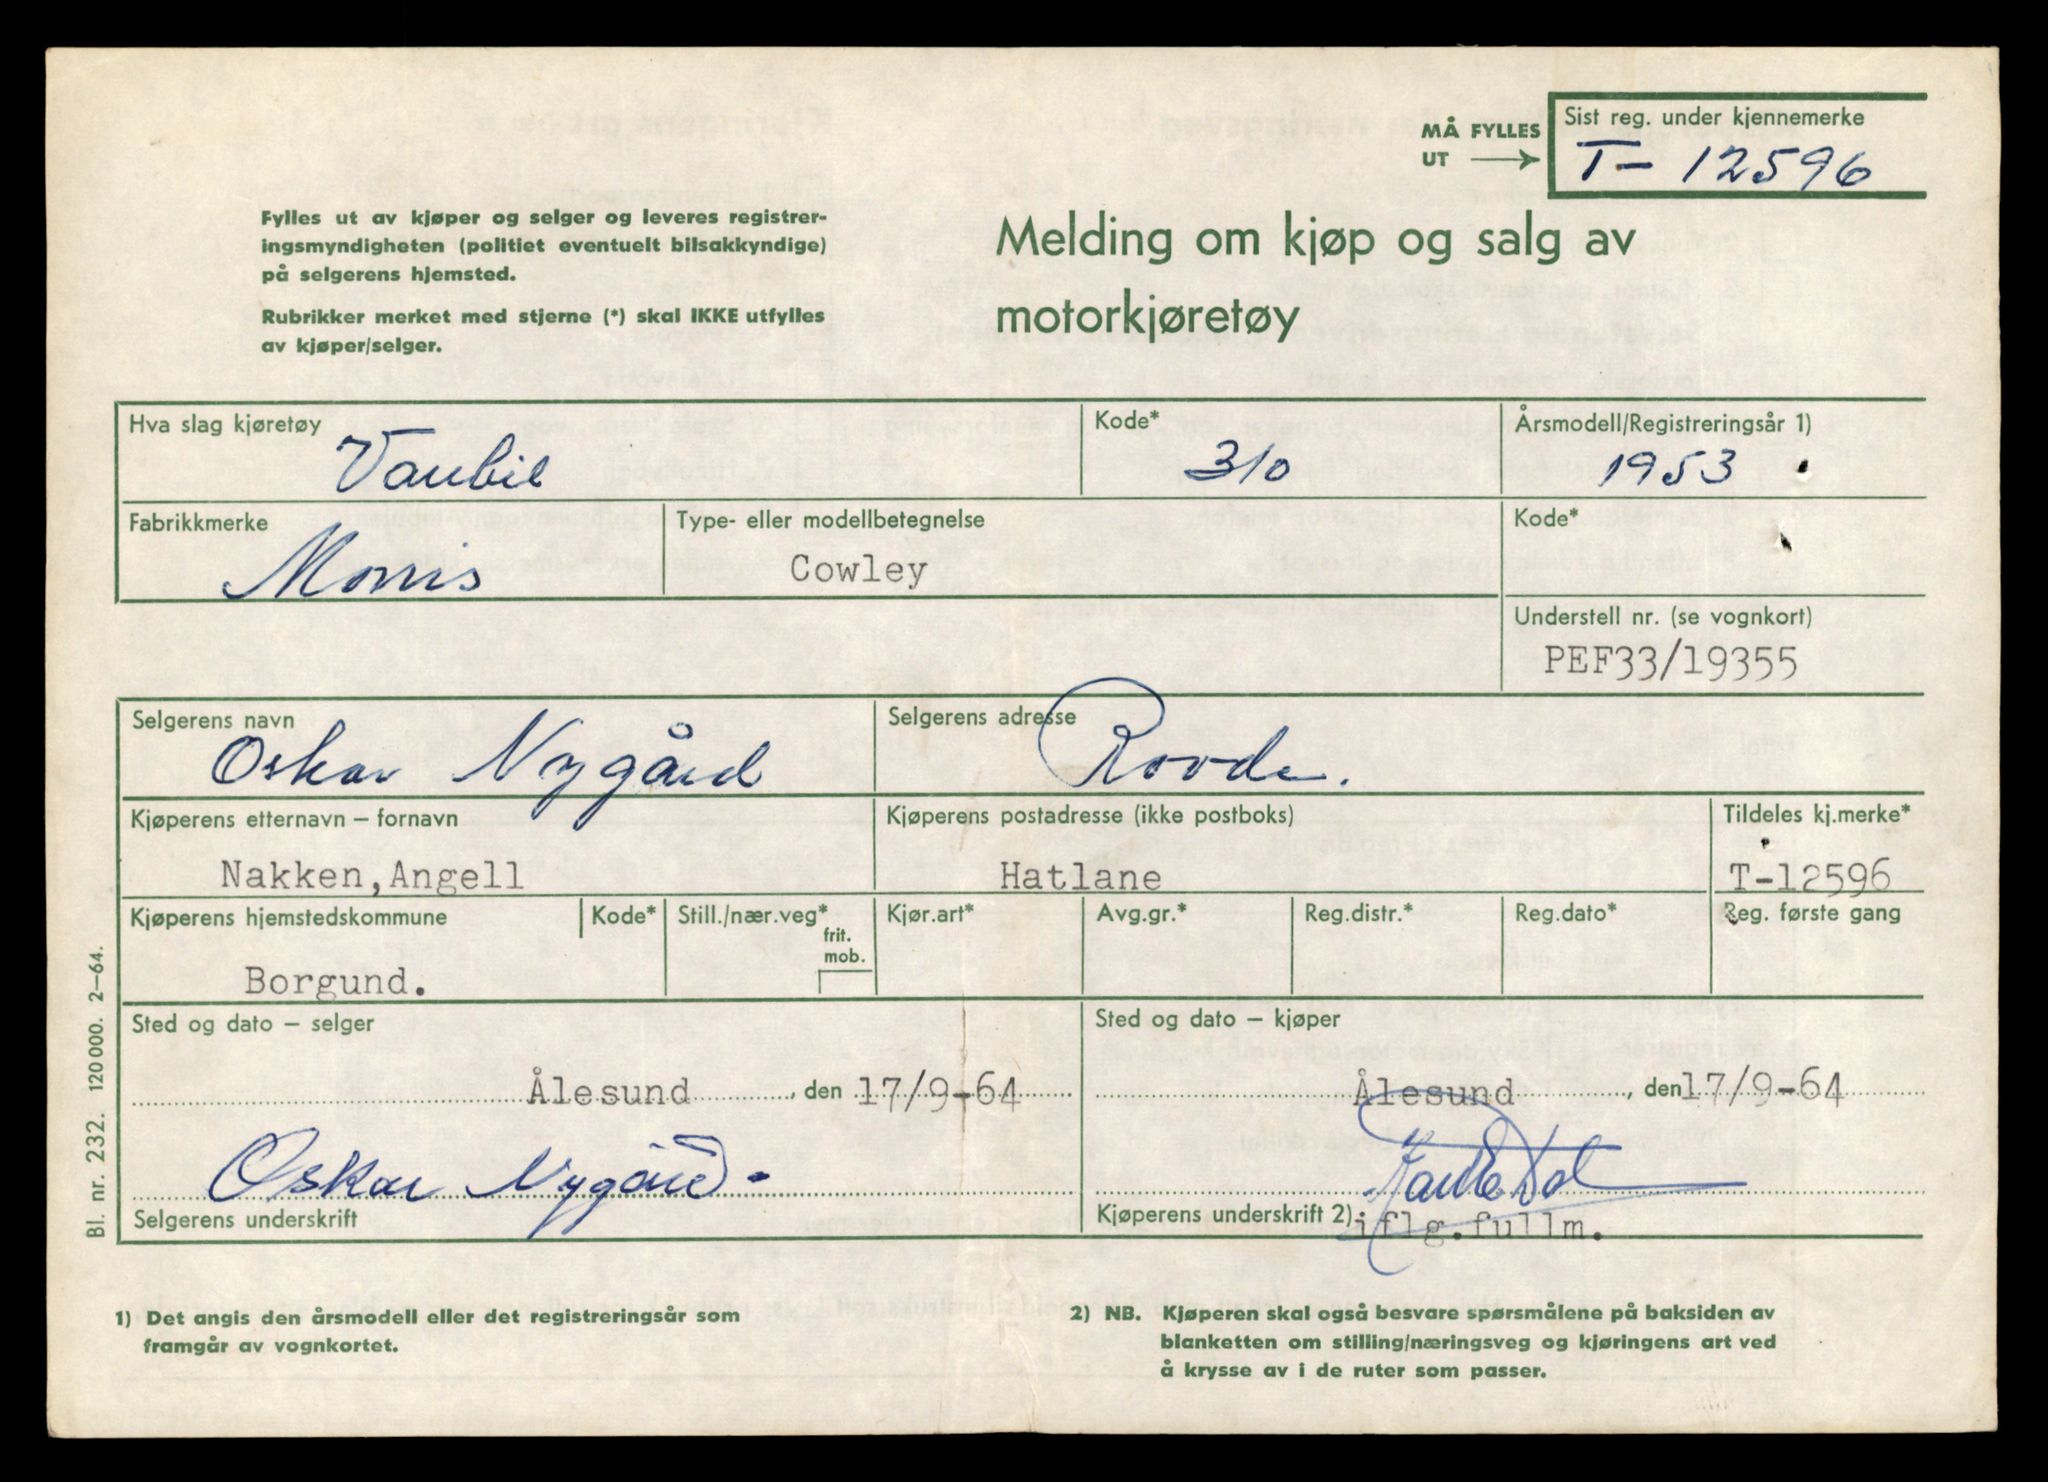 MÅ FYLLES
UT
Sist reg. under kjennemerke
T- 12596
Fylles ut av kjøper og selger og leveres registrer-
ingsmyndigheten (politiet eventuelt bilsakkyndige)
på selgerens hjemsted.
Rubrikker merket med stjerne (*) skal IKKE utfylles
av kjøper/selger.
Melding om kjøp og salg av
motorkjøretøy
Hva slag kjøretøy
Varebil
Kode*
310
Årsmodell/Registreringsår 1)
1953
Fabrikkmerke
Morris
Type- eller modellbetegnelse
Cowley
Kode*
Understell nr. (se vognkort)
PEF33/19355
Selgerens navn
Oskar Nygård
Selgerens adresse
Rovde.
Kjøperens etternavn – fornavn
Nakken, Angell
Kjøperens postadresse (ikke postboks)
Hatlane
Tildeles kj.merke*
T-12596
Kjøperens hjemstedskommune
Borgund.
Kode*
Still./nær.veg*
frit.
mob.
Kjør.art*
Avg.gr.*
Reg.distr.*
Reg.dato*
Reg. første gang
Sted og dato – selger
Ålesund, den 17/9-64
Oskar Nygård.
Selgerens underskrift
Sted og dato – kjøper
Ålesund, den 17/9-64
Kjøperens underskrift 2) iflg.fullm.
Bl. nr. 232. 120 000. 2–64.
1) Det angis den årsmodell eller det registreringsår som
framgår av vognkortet.
2) NB. Kjøperen skal også besvare spørsmålene på baksiden av
blanketten om stilling/næringsveg og kjøringens art ved
å krysse av i de ruter som passer.